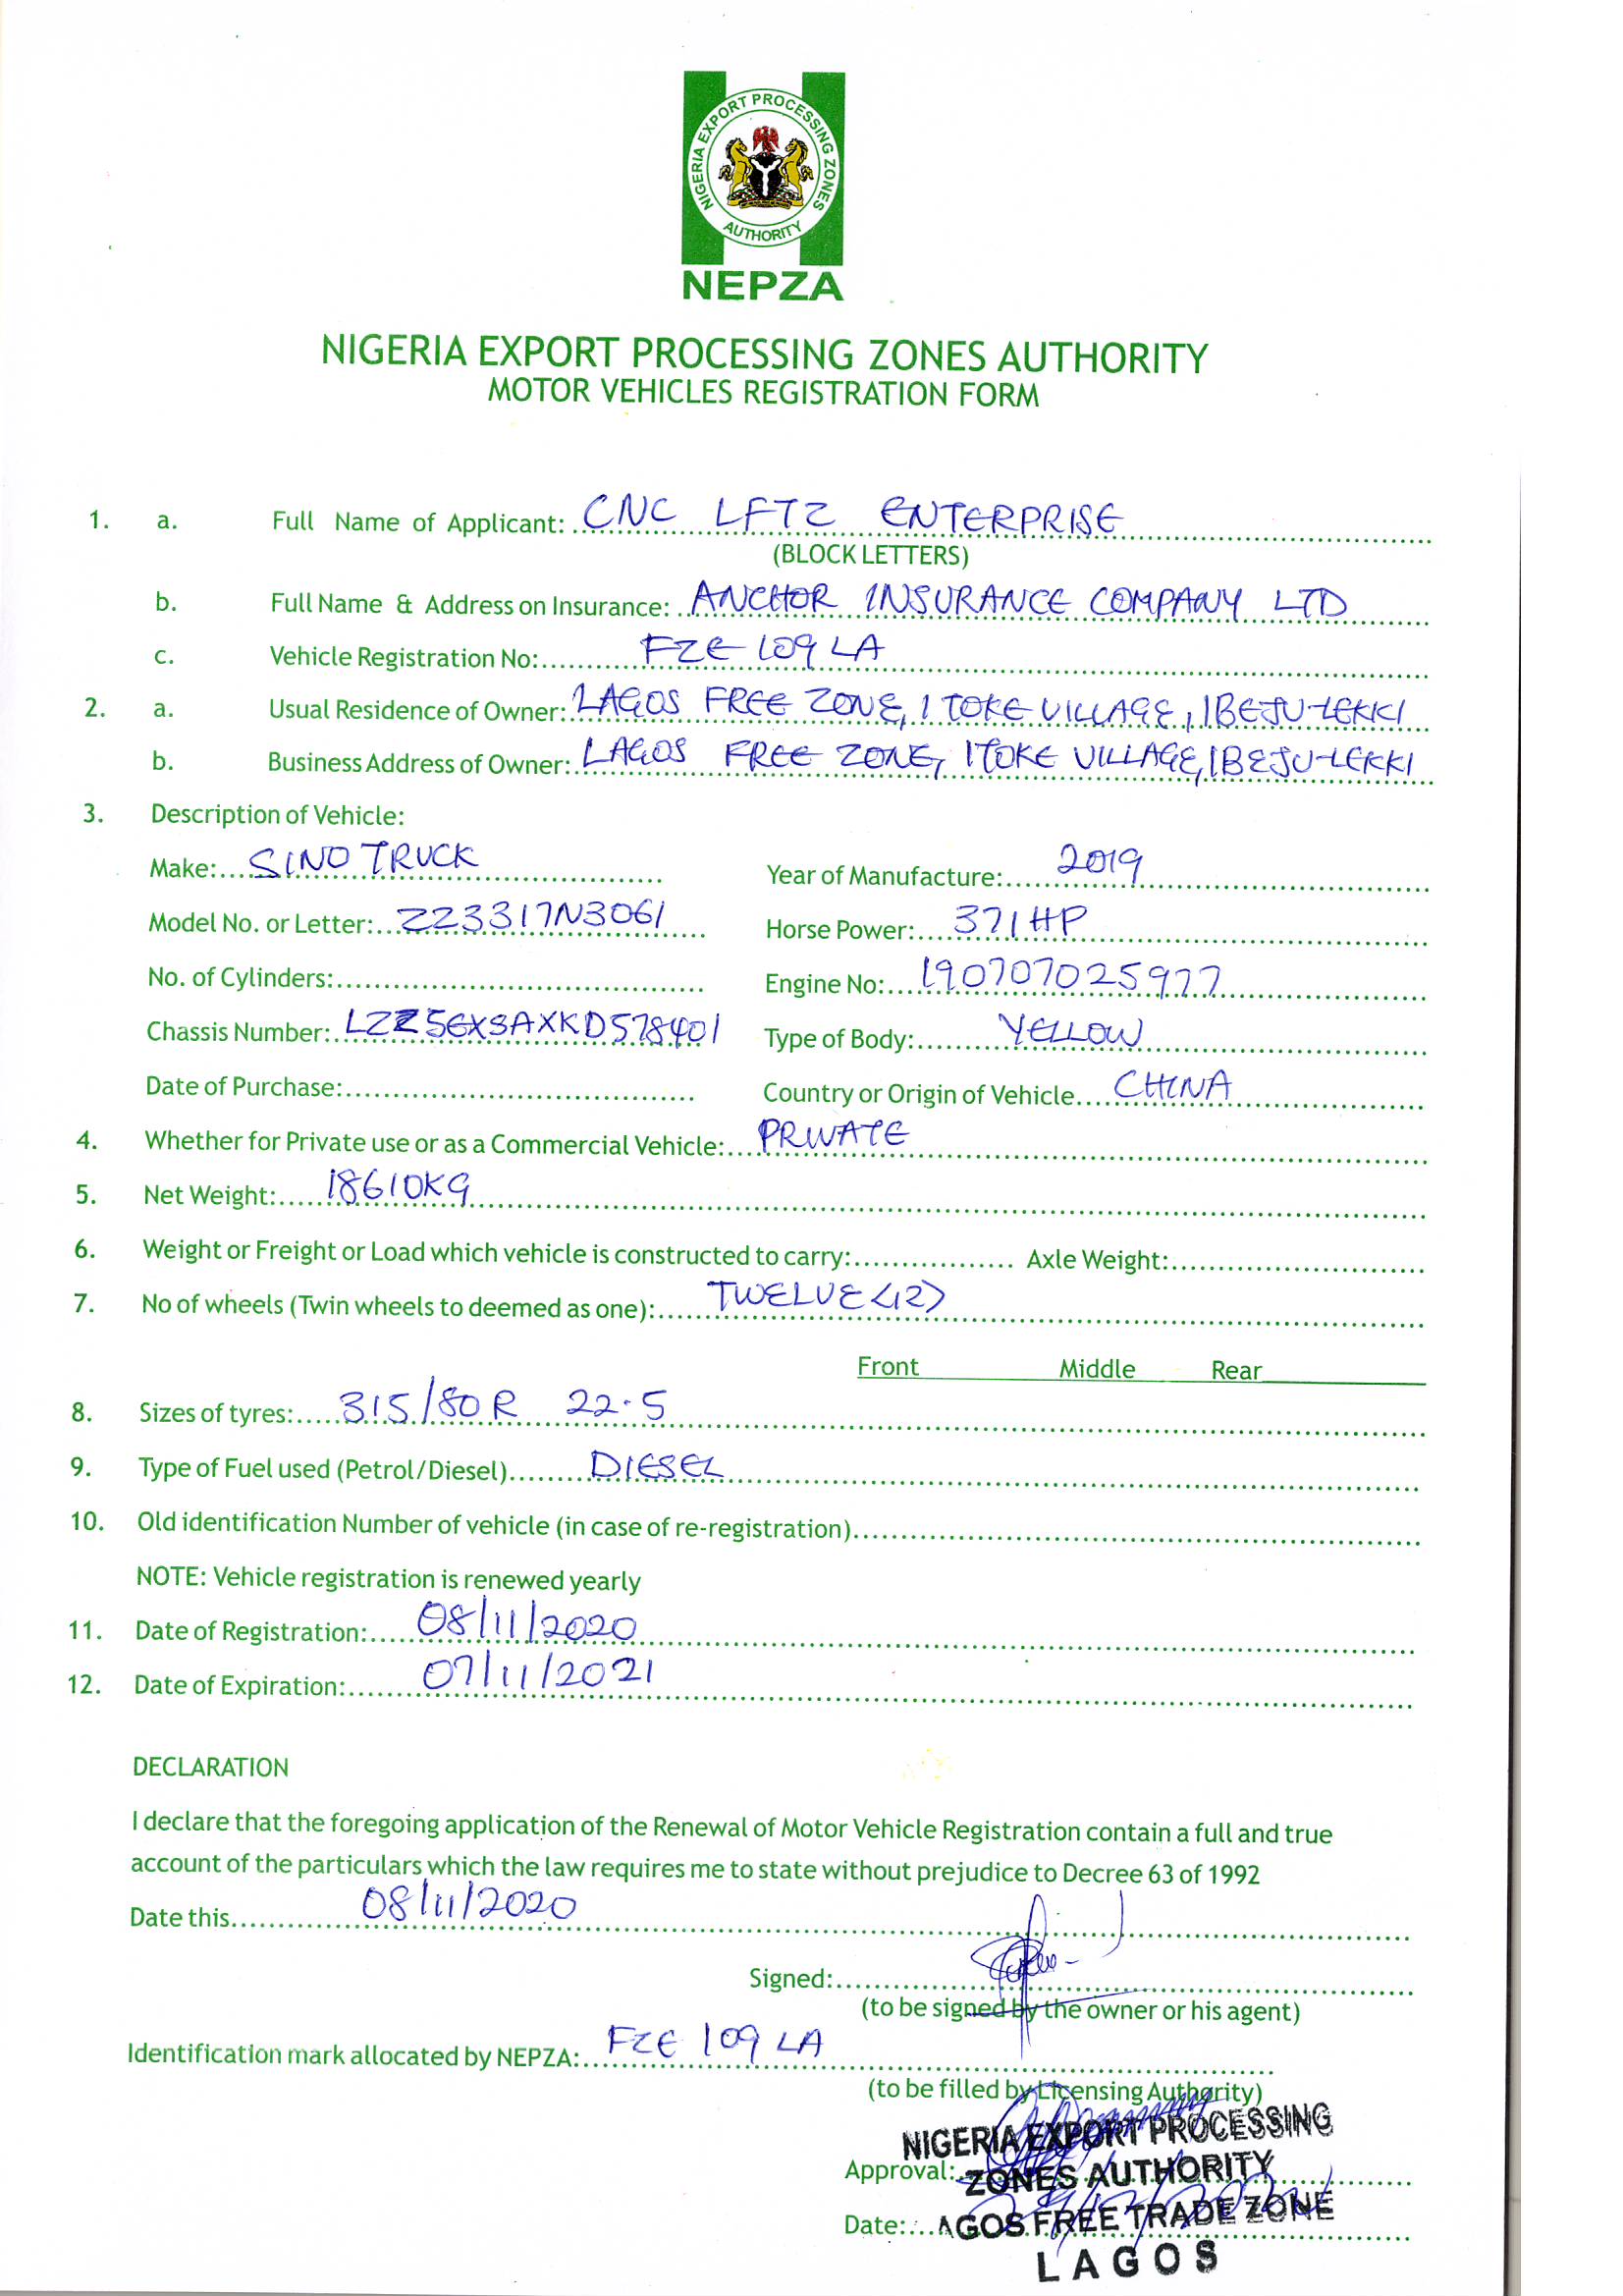 NIGERIA EXPORT PROCESSING ZONES
AUTHORITY
NEPZA
NIGERIA EXPORT PROCESSING ZONES AUTHORITY
MOTOR VEHICLES REGISTRATION FORM
1. a. Full Name of Applicant: CNC LFTZ ENTERPRISE
(BLOCK LETTERS)
b. Full Name & Address on Insurance: ANCHOR INSURANCE COMPANY LTD
c. Vehicle Registration No: FZE 109 LA
2. a. Usual Residence of Owner: LAGOS FREE ZONE, ITOKE VILLAGE, IBEJU-LEKKI
b. Business Address of Owner: LAGOS FREE ZONE, ITOKE VILLAGE, IBEJU-LEKKI
3. Description of Vehicle:
Make: SINO TRUCK Year of Manufacture: 2019
Model No. or Letter: ZZ3317N3061 Horse Power: 371HP
No. of Cylinders: Engine No: 190707025977
Chassis Number: LZZ5EXSAXKD578401 Type of Body: YELLOW
Date of Purchase: Country or Origin of Vehicle CHINA
4. Whether for Private use or as a Commercial Vehicle: PRIVATE
5. Net Weight: 18610KG
6. Weight or Freight or Load which vehicle is constructed to carry: Axle Weight:
7. No of wheels (Twin wheels to deemed as one): TWELVE (12)
Front Middle Rear
8. Sizes of tyres: 315/80R 22.5
9. Type of Fuel used (Petrol/Diesel) DIESEL
10. Old identification Number of vehicle (in case of re-registration)
NOTE: Vehicle registration is renewed yearly
11. Date of Registration: 08/11/2020
12. Date of Expiration: 07/11/2021
DECLARATION
I declare that the foregoing application of the Renewal of Motor Vehicle Registration contain a full and true
account of the particulars which the law requires me to state without prejudice to Decree 63 of 1992
Date this 08/11/2020
Signed:
(to be signed by the owner or his agent)
Identification mark allocated by NEPZA: FZE 109 LA
(to be filled by Licensing Authority)
NIGERIA EXPORT PROCESSING
Approval: ZONES AUTHORITY
Date: AGOS FREE TRADE ZONE
LAGOS